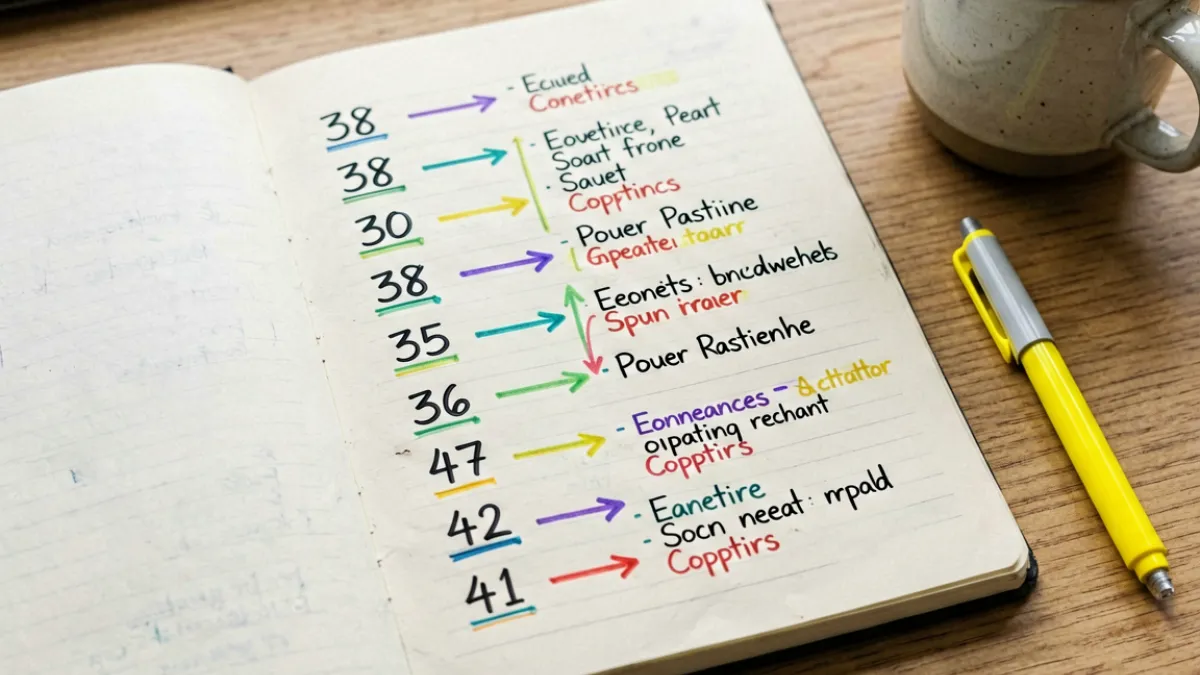 38
- Ecıued
Conetircs
38
- Eovetirce, Peart
Soart frone
30
· Sauet
Copftincs
38
- Pouer Pastiine
Gpeaiteı toarr
35
Eeonéts : bncdwehels
Spun irraıer
36
- Pouer Rastienhe
47
- Eonneances - &cttattor
oıpating rechant
Copptirs
42
- Eanetire
- Socn neeat : mpald
41
Copptirs